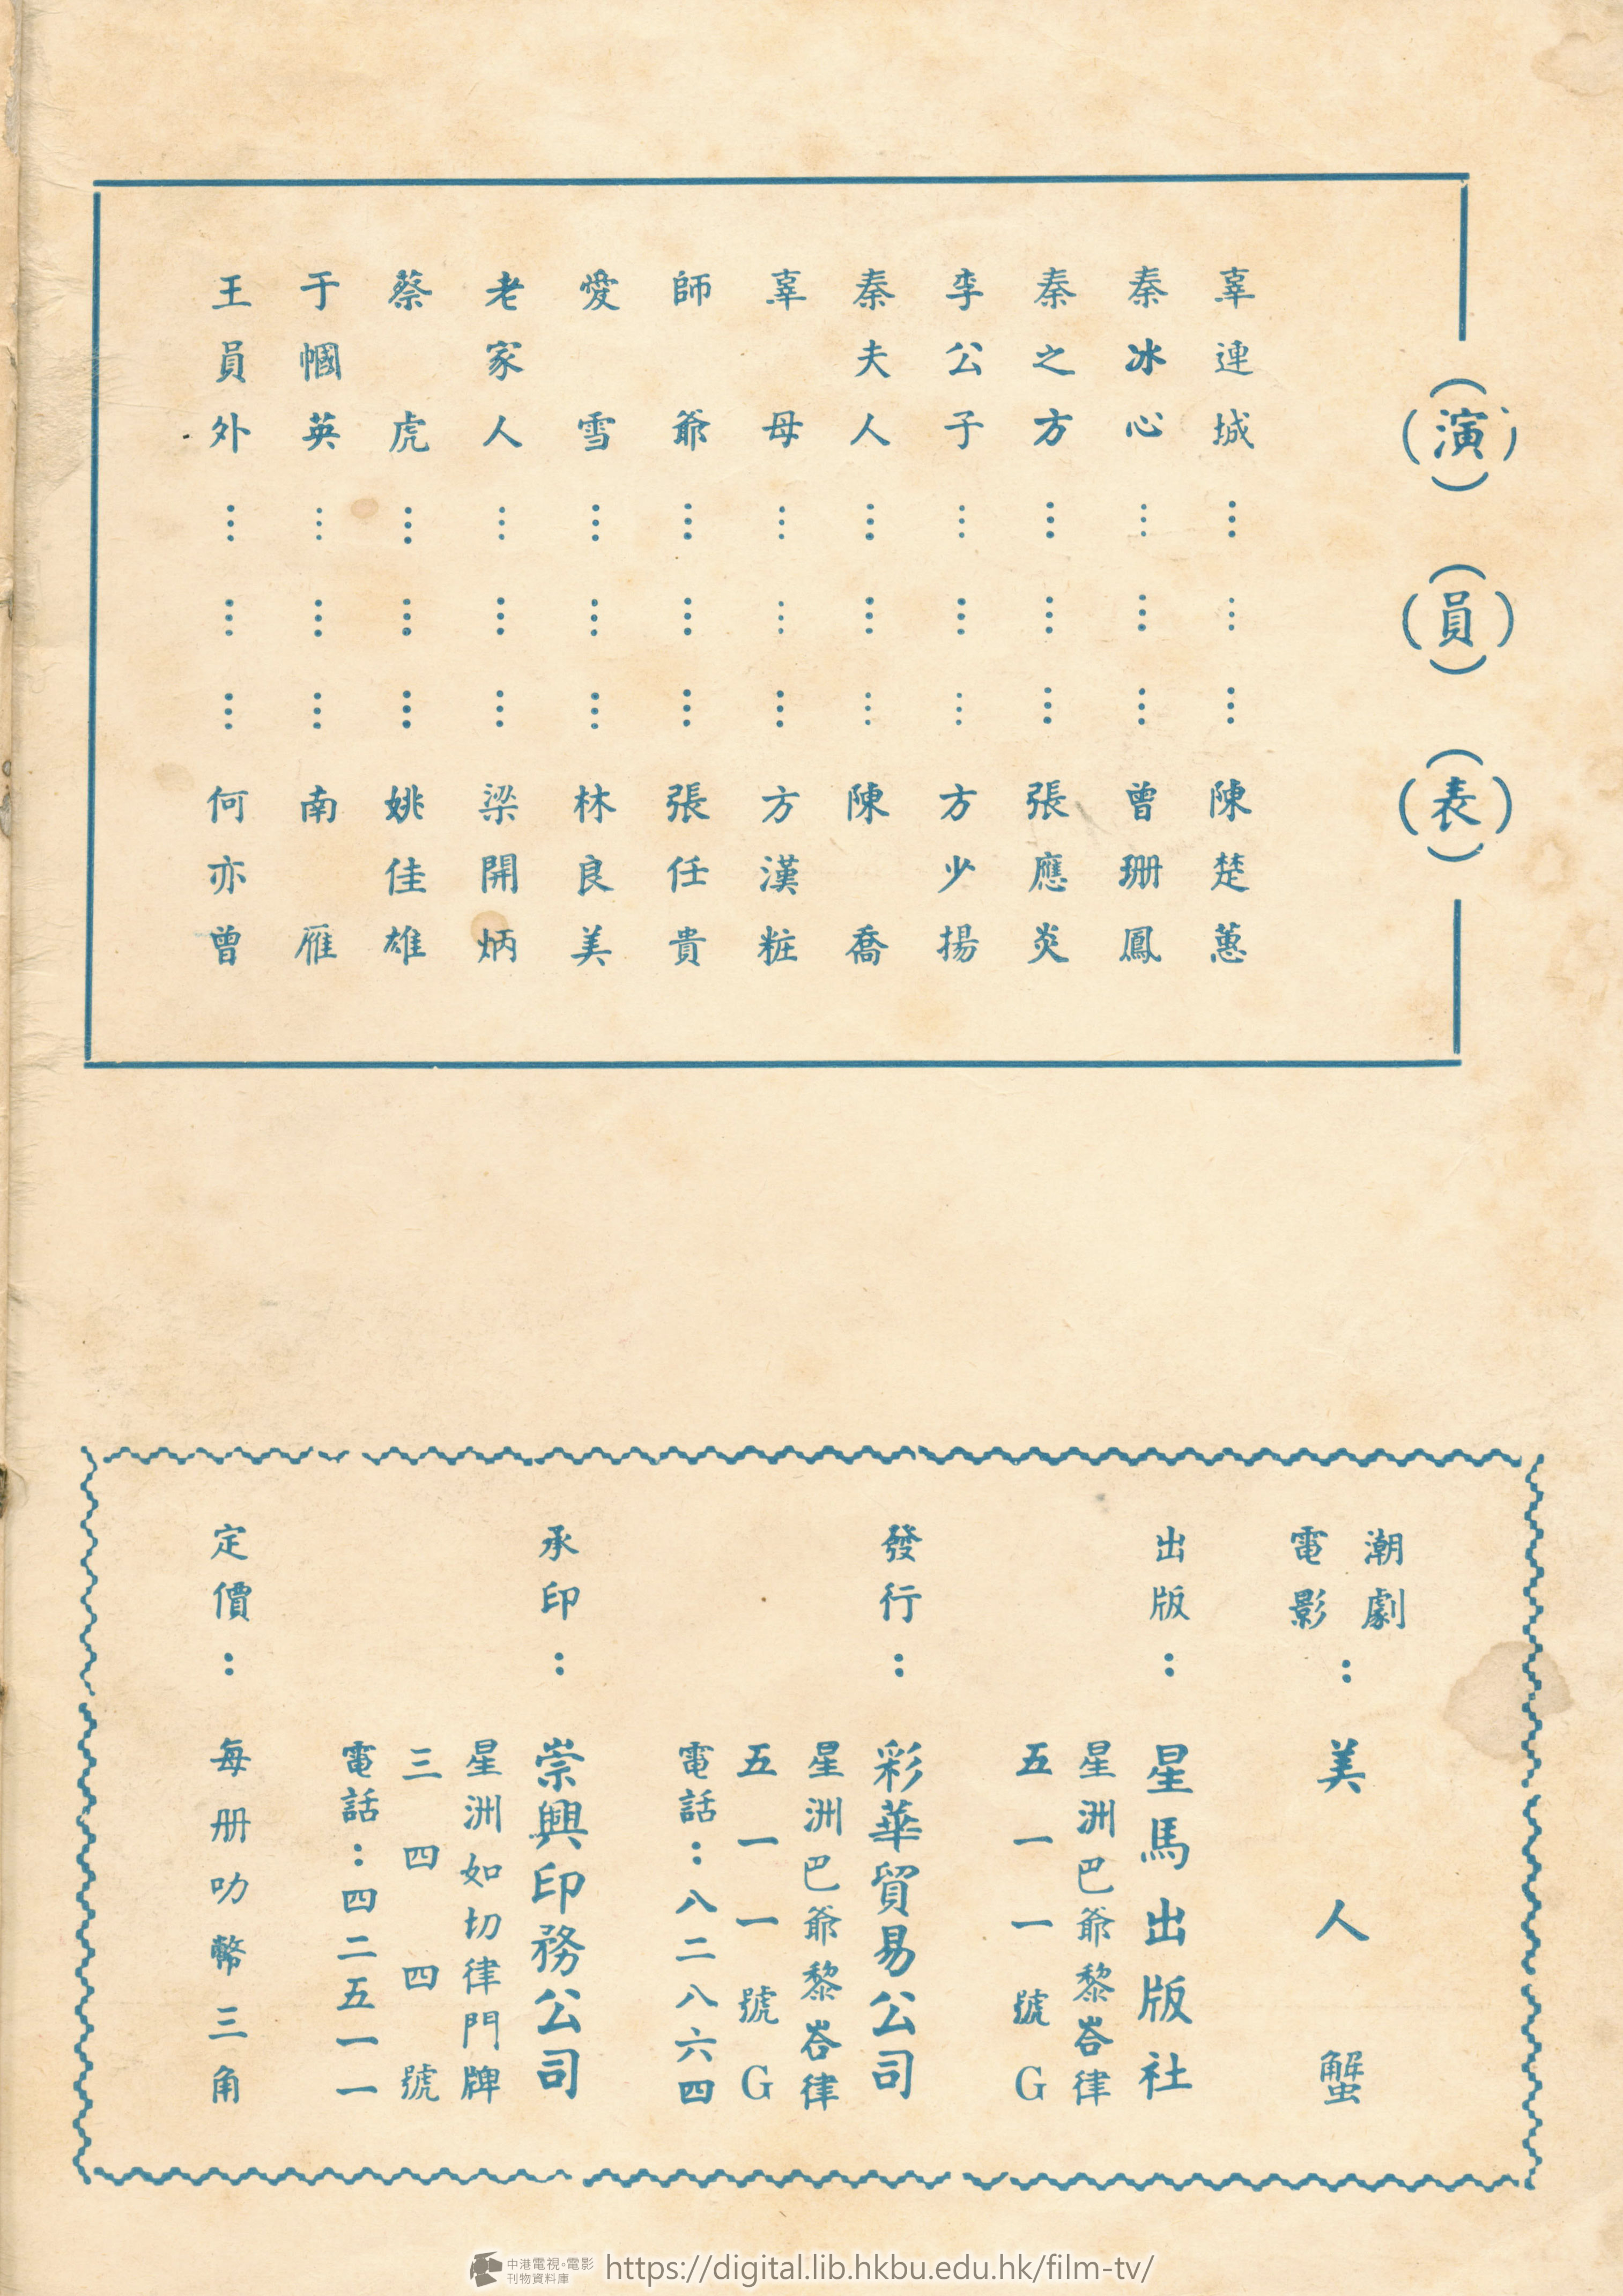 （演）（員）（表）
辜連城………………陳楚蕙
秦冰心………………曾珊鳳
秦之方………………張應炎
李公子………………方少揚
秦夫人………………陳喬
辜母………………方漢粧
師爺………………張任貴
愛雪………………林良美
老家人………………梁開炳
蔡虎………………姚佳雄
于幗英………………南雁
王員外………………何亦曾
潮劇
電影：美人蟹
出版：星馬出版社
星洲巴爺黎峇律
五一一號G
發行：彩華貿易公司
星洲巴爺黎峇律
五一一號G
電話：八二八六四
承印：崇興印務公司
星洲如切律門牌
三四四號
電話：四二五一一
定價：每册叻幣三角
中港電視·電影
刊物資料庫
https://digital.lib.hkbu.edu.hk/film-tv/